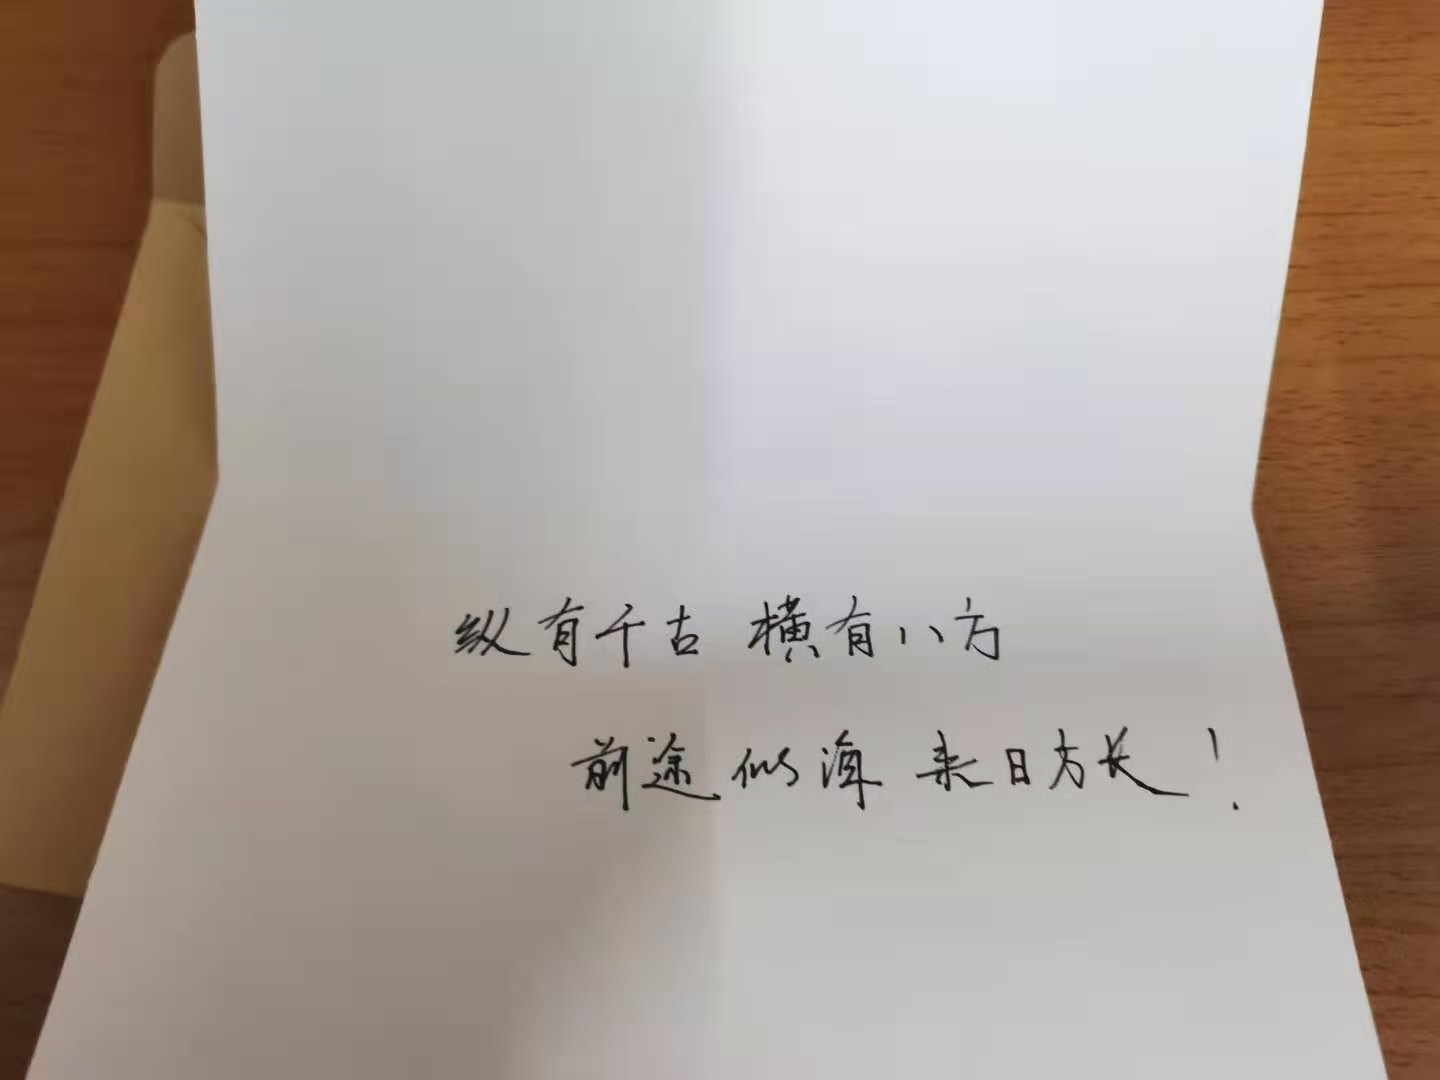 纵有千古 横有八方
前途似海 来日方长!